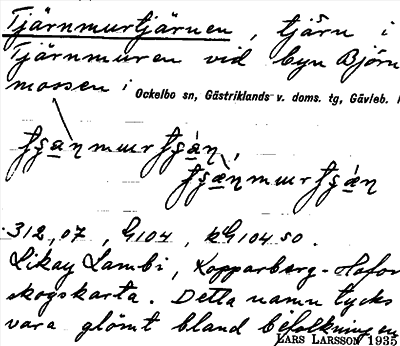 Tjärnmurtjärnen, tjärn i
Tjärnmuren vid byn Björn
mossen i Ockelbo sn, Gästriklands v. doms. tg, Gävleb.
312,07, G104, kG104 SO.
Likay Lambi, Kopparberg-Hofor
skogskarta. Detta namn tycks
vara glömt bland befolkningen
LARS LARSSON 1935